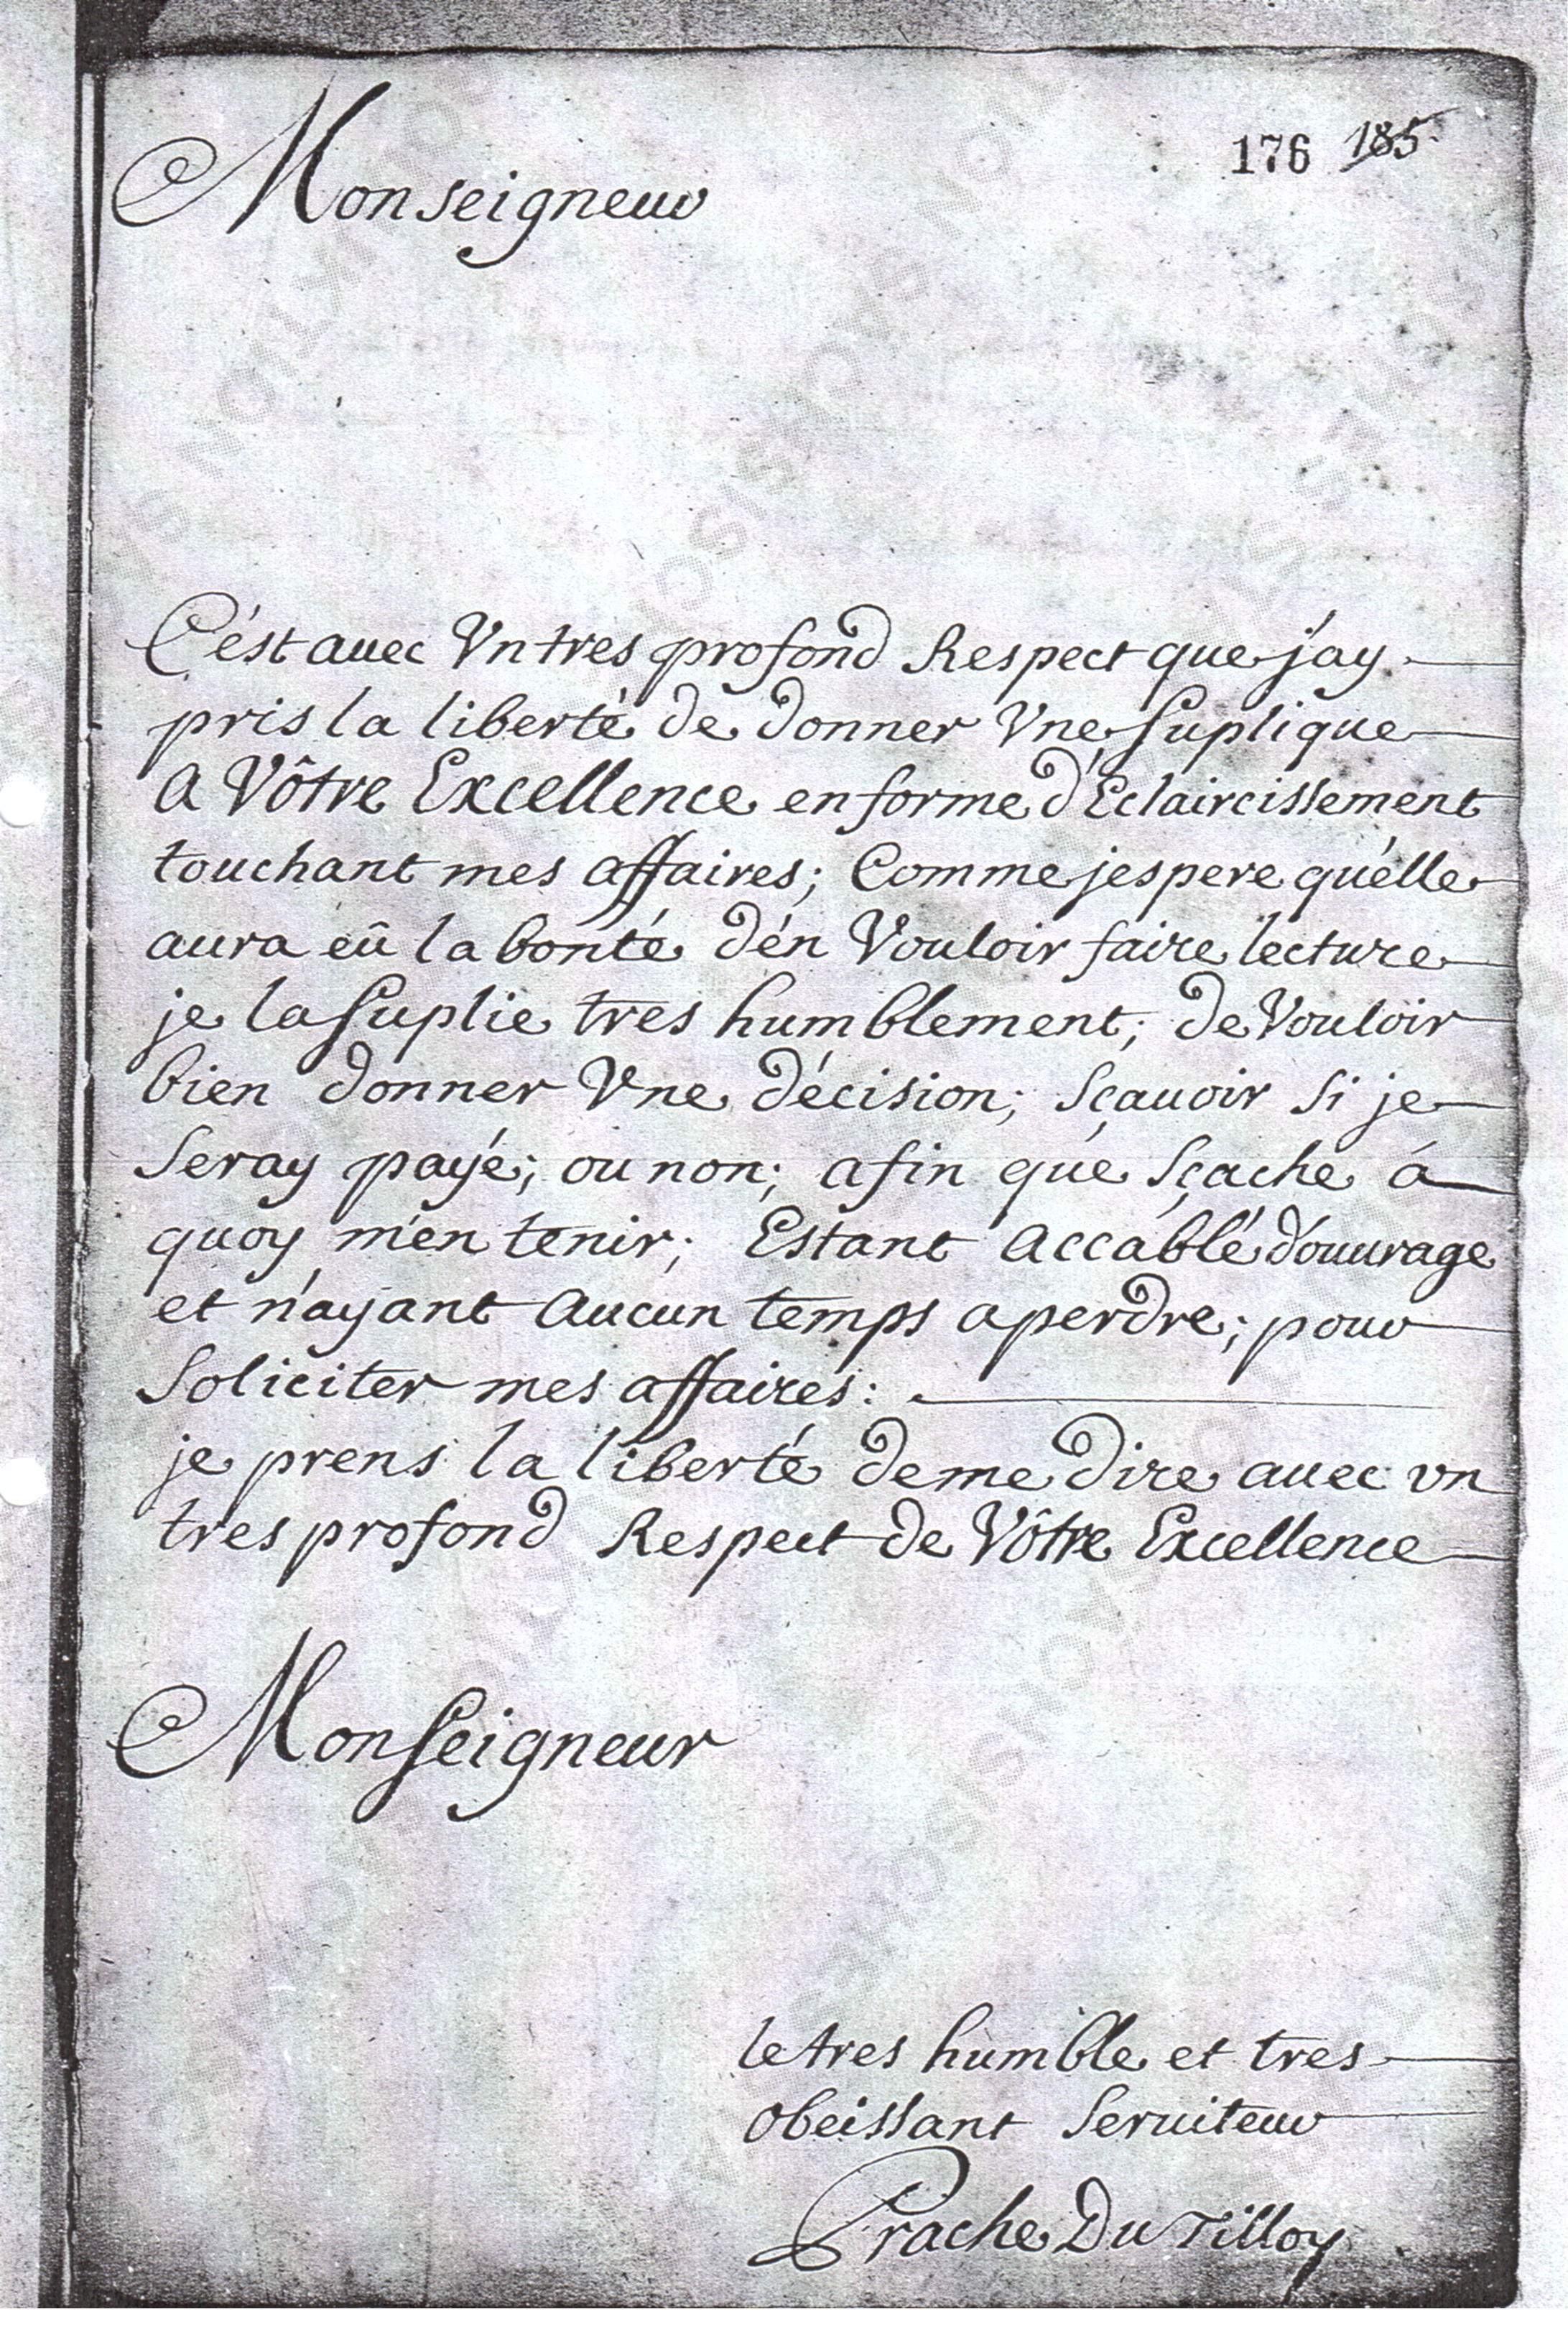 176 185
Monseigneur
C'ést auec Vn tres profond Respect que j'ay
pris la liberté de donner Vne suplique
A Vôtre Excellence en forme d'Eclaircissement
touchant mes affaires; Comme jespere qu'élle
aura eû la bonté d'én Vouloir faire lecture
je la suplie tres humblement; de Vouloir
bien donner Vne décision; sçauoir si je
seray payé; ou non; afin que sçache á
quoy m'en tenir; Estant Accablé d'ouurage
et n'ayant Aucun temps a perdre; pour
soliciter mes affaires:
je prens la liberté de me dire auec vn
tres profond Respect de Vôtre Excellence
Monseigneur
le tres humble et tres
obeissant seruiteur
Prache Du Tilloy